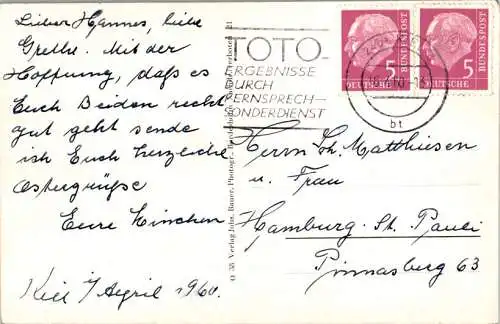 Lieber Hannes, liebe
Grethe. Mit der
Hoffnung, daß es
Euch Beiden recht
gut geht sende
ich Euch herzliche
Ostergrüße
Eure Minchen
Kiel 1/ April 1960.
TOTO-
ERGEBNISSE
DURCH
FERNSPRECH-
SONDERDIENST
bt
5
DEUTSCHE BUNDESPOST
5
DEUTSCHE BUNDESPOST
Verlag Johs. Bauer, Photogr.
Herrn Joh. Matthiesen
u. Frau
Hamburg. St. Pauli
Pinnasberg 63